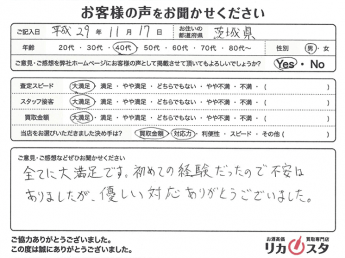 お客様の声をお聞かせください
ご記入日 平成 29 年 11 月 17 日 お住いの都道府県 茨城県
年齢 20代・30代・40代・50代・60代・70代・80代 性別 男・女
ご意見・ご感想を弊社ホームページにお客様の声として掲載させて頂いてもよろしいでしょうか? Yes・No
査定スピード 大満足・満足・やや満足・どちらでもない・やや不満・不満・( )
スタッフ接客 大満足・満足・やや満足・どちらでもない・やや不満・不満・( )
買取金額 大満足・満足・やや満足・どちらでもない・やや不満・不満・( )
当店をお選びいただきました決め手は? 買取金額・対応力・利便性・スピード・その他( )
ご意見・ご感想などぜひお聞かせください
全てに大満足です。初めての経験だったので不安は
ありましたが、優しい対応ありがとうございました。
ご協力ありがとうございました。
この度は誠にありがとうございました。
お酒高価買取専門店
リカスタ